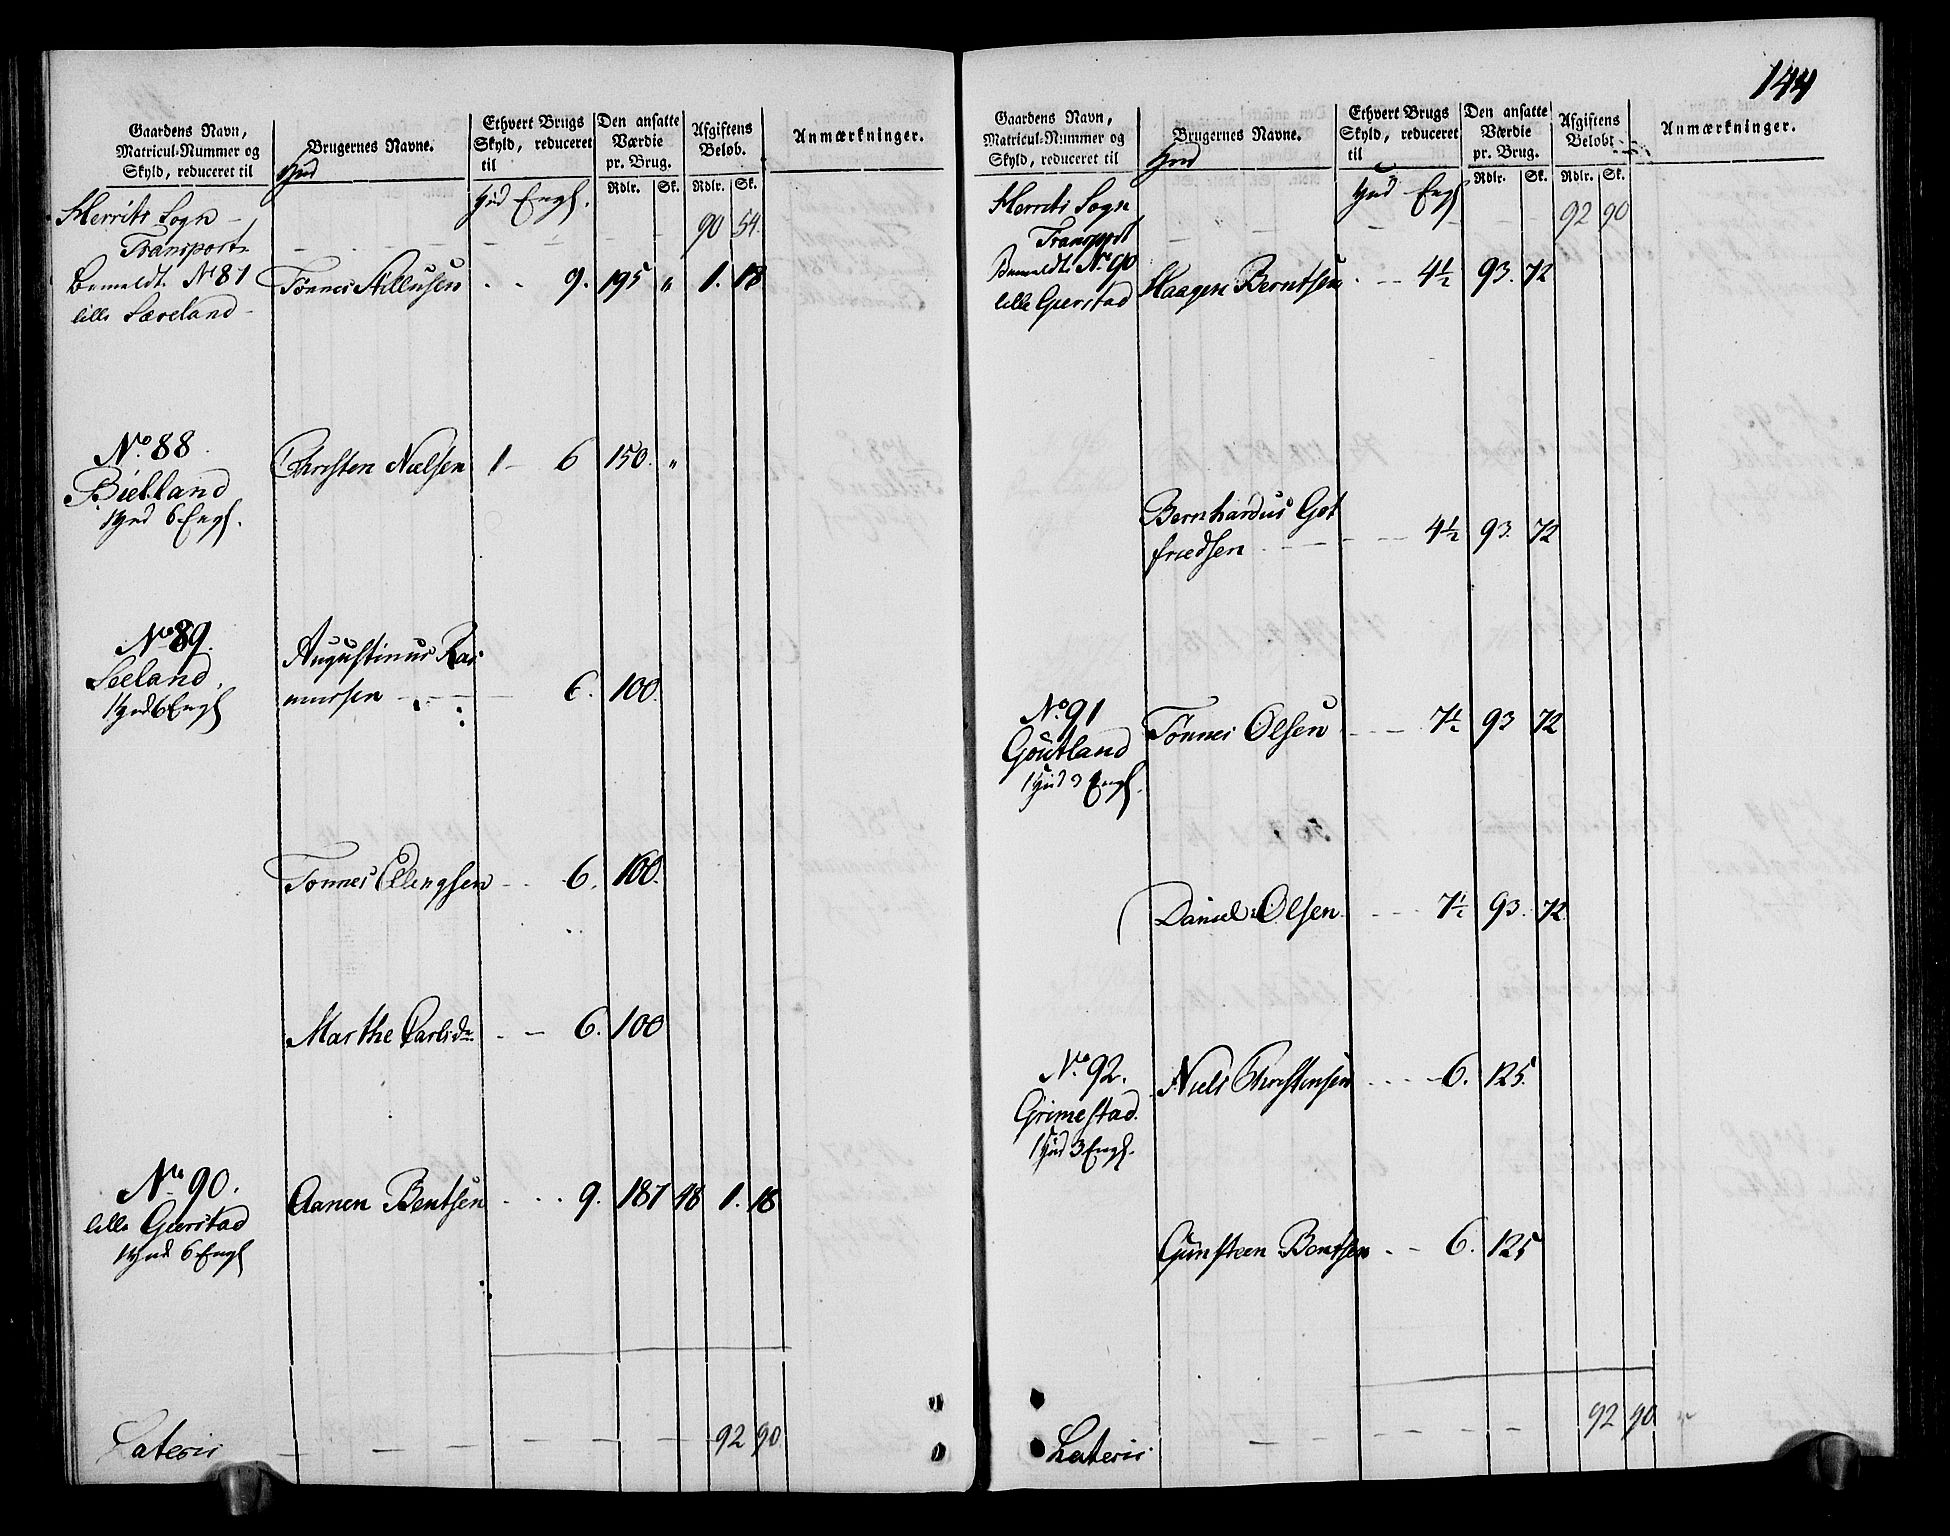 Gaardens Navn,
Matricul-Nummer og
Skyld, reduceret til
Hud
Brugernes Navne.
Ethvert Brugs
Skyld, reduceret
til
Hud Engl.
Den ansatte
Værdie
pr. Brug.
Rdlr. Sk.
Afgiftens
Beløb.
Rdlr. Sk.
Anmærkninger.
Herrits Sogn
Transport 90 54.
Bemeldt. No 87 Tønnes 9. 195 " 1. 18
lille Særeland
No. 88 Christen Nielsen 1 6 150. "
Bielland
1 Hud 6 Engl.
No 89. Augustinus Ras
Seeland. mussen 6. 100.
1 Hud 6 Engl
Tønnes Ellengsen 6. 100.
Marthe Carlsdr 6. 100
No. 90. Aanen Bentsen 9. 187 48 1. 18
lille Gierstad
1 Hud 6 Engl
Lateris 92 90.
144
Gaardens Navn,
Matricul-Nummer og
Skyld, reduceret til
Hud
Brugernes Navne.
Ethvert Brugs
Skyld, reduceret
til
Hud Engl
Den ansatte
Værdie
pr. Brug.
Rdlr. Sk.
Afgiftens
Beløb.
Rdlr. Sk.
Anmærkninger.
Herrits Sogn
Transport 92 90
Bemeldt. No. 90 Haagen Berntsen 4½ 93. 72
lille Gierstad
Bernhardus Got
friedsen 4½ 93. 72
No. 91 Tønnes Olsen 7½ 93 72
Goutland
1 Hud 3 Engl.
Daniel Olsen 7½ 93. 72
No. 92. Niels Christensen 6. 125.
Grimestad.
1 Hud 3 Engl.
Gunsteen Bentsen 6. 125
Lateris 92 90